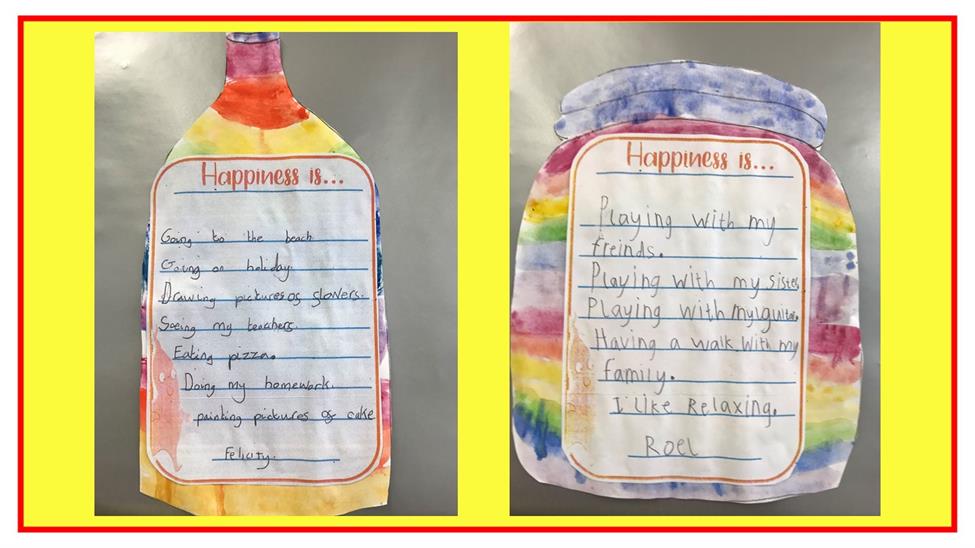 Happiness is...
Going to the beach
Going on holiday.
Drawing pictures of flowers.
Seeing my teachers.
Eating pizza.
Doing my homework.
painting pictures of cake
Felicity.
Happiness is...
Playing with my
freinds.
Playing with my sister.
Playing with my guitar.
Having a walk with my
family.
I like Relaxing.
Roel